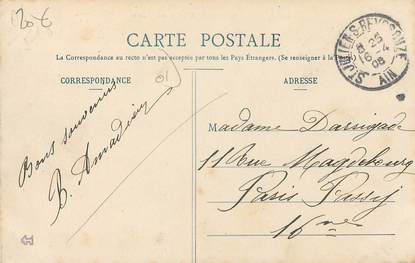 120€
CARTE POSTALE
La Correspondance au recto n'est pas acceptée par tous les Pays Étrangers. (Se renseigner à la Poste)
CORRESPONDANCE
ADRESSE
ST JULIEN S. REYSSOUZE
8 25
16 - 4
08
AIN
01
Bons souvenirs
B. Amadieu
Madame Darrigade
11 Rue Magdebourg
Paris Passy
16me